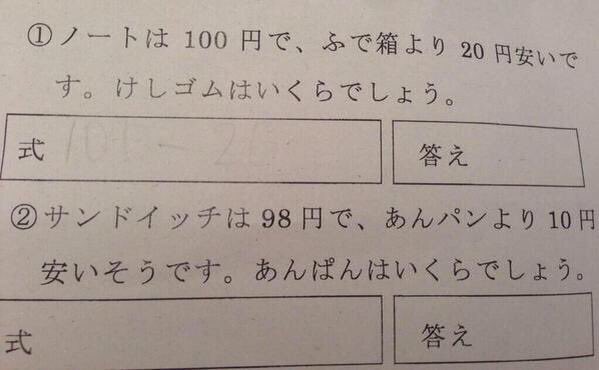 ① ノートは 100 円で、ふで箱より 20 円安いで
す。けしゴムはいくらでしょう。
式 100－20
答え
② サンドイッチは 98 円で、あんパンより 10 円
安いそうです。あんぱんはいくらでしょう。
式
答え